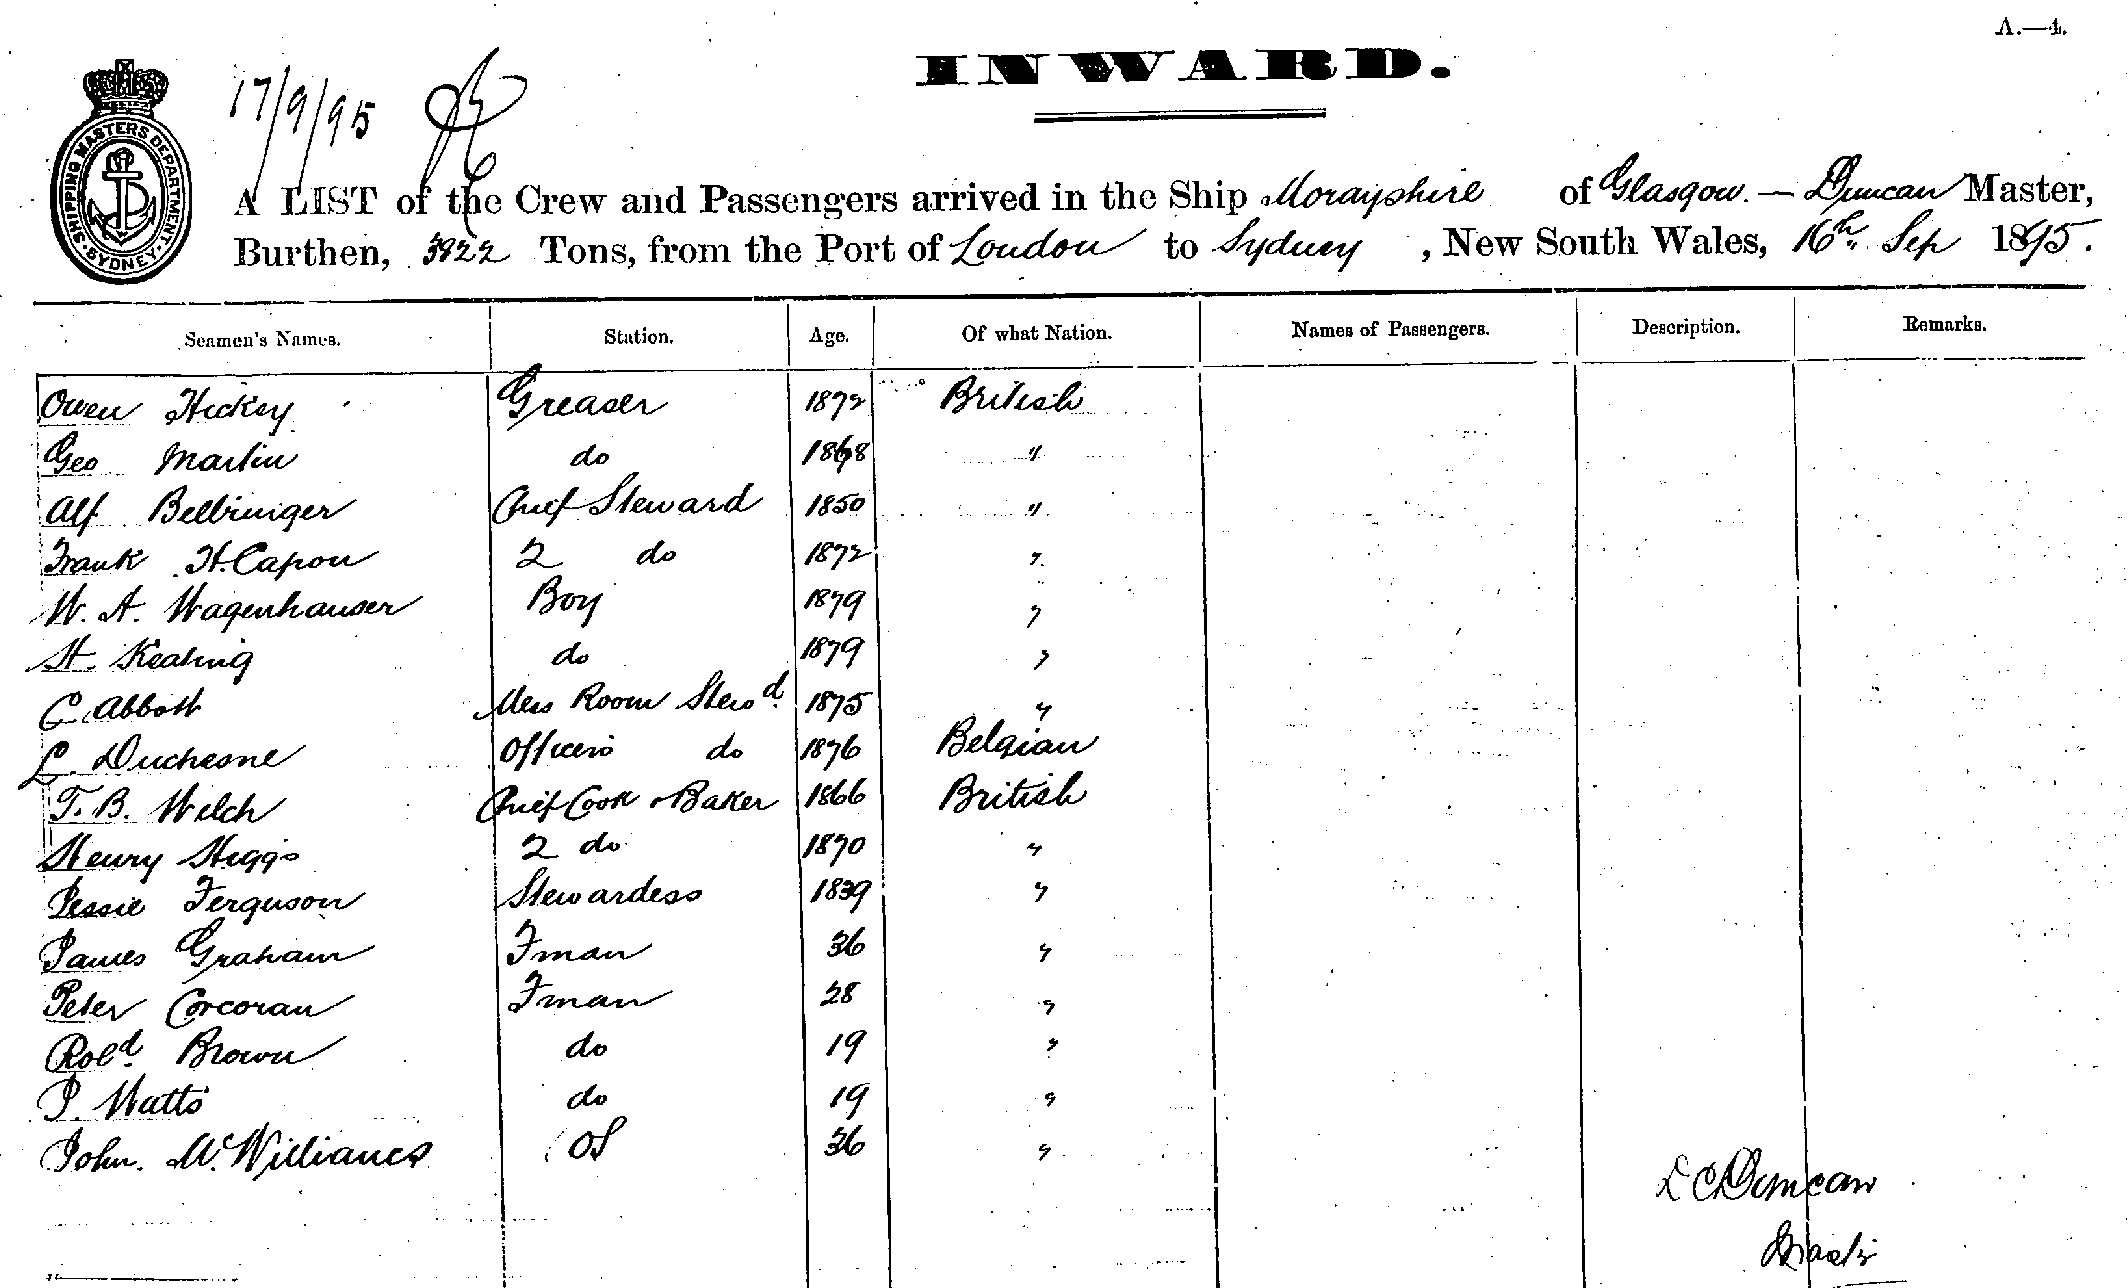 A.—4.
INWARD.
17/9/95
SHIPPING MASTERS DEPARTMENT · SYDNEY ·
A LIST of the Crew and Passengers arrived in the Ship Morayshire of Glasgow. — Duncan Master,
Burthen, 3922 Tons, from the Port of London to Sydney, New South Wales, 16th Sep 1895.
Seamen's Names. Station. Age. Of what Nation. Names of Passengers. Description. Remarks.
Owen Hickey Greaser 1872 British
Geo Martin do 1868 "
Alf Bellringer Chief Steward 1850 "
Frank H. Capon 2 do 1872 "
W. A. Wagenhauser Boy 1879 "
H. Keating do 1879 "
C Abbott Mess Room Stewd. 1875 "
L. Duchesne Officers do 1876 Belgian
T. B. Welch Chief Cook & Baker 1866 British
Henry Higgs 2 do 1870 "
Jessie Ferguson Stewardess 1839 "
James Graham Fman 36 "
Peter Corcoran Fman 28 "
Robd. Brown do 19 "
P. Watts do 19 "
John. McWilliames OS 36 "
D C Duncan
Master